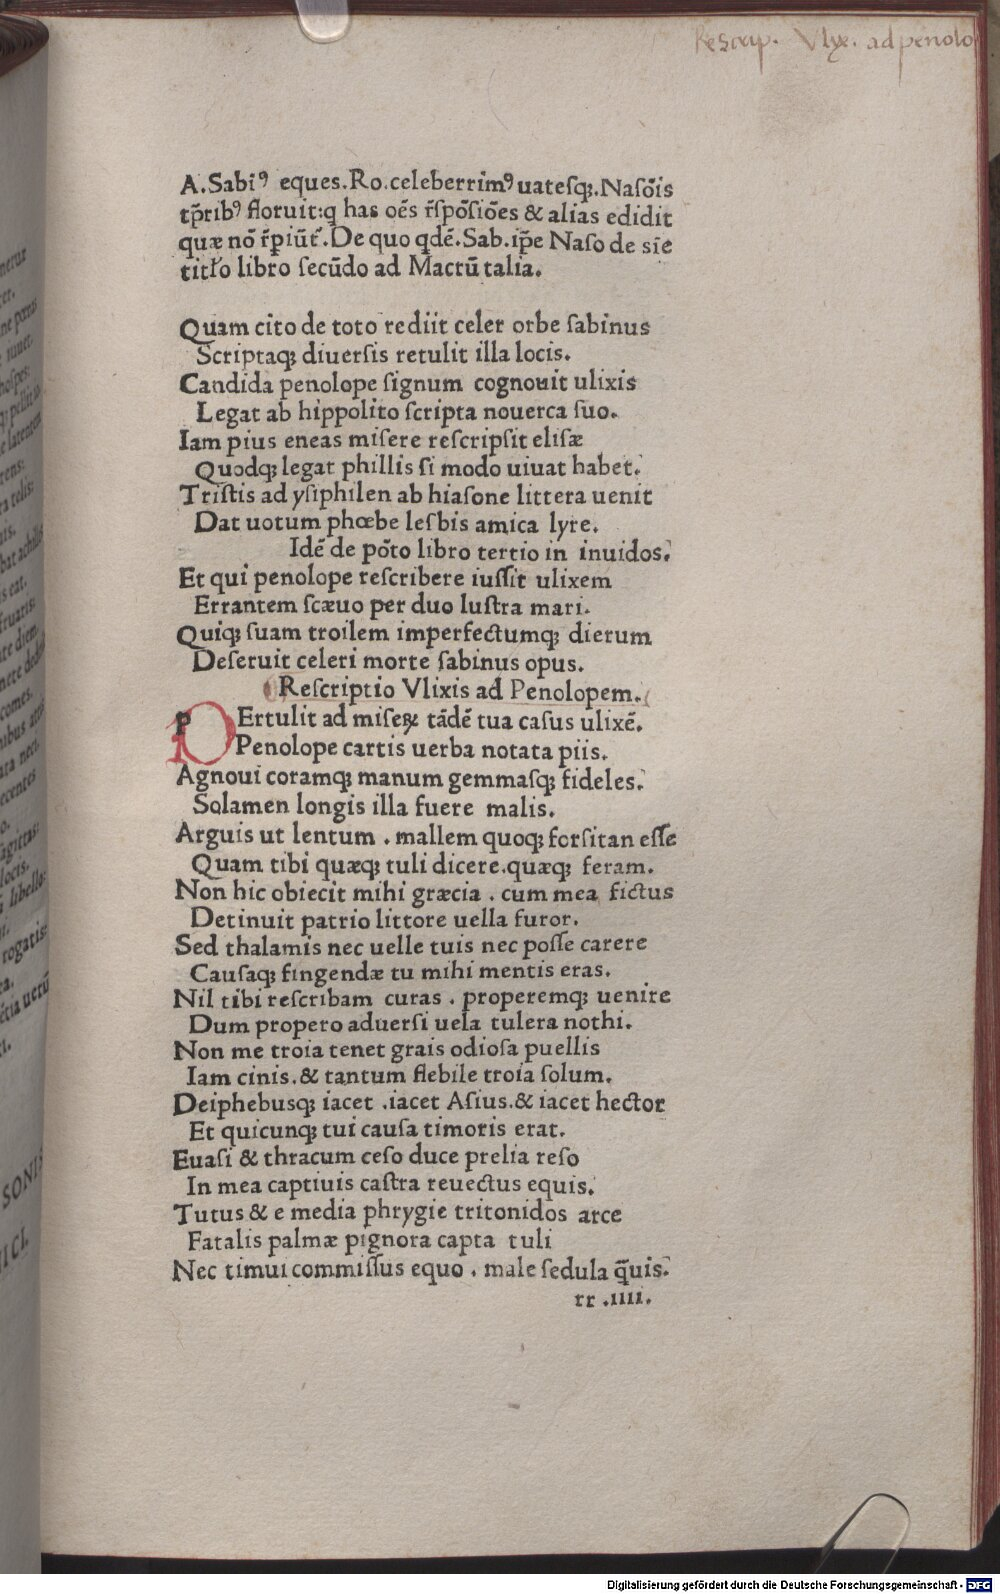 Rescrip. Vlyx. ad penolo
A.Sabiꝰ eques.Ro.celeberrimꝰ uatesqꝫ.Nasōis
tp̄ribꝰ floruit:q has oēs r̄spōsiōes & alias edidit
quæ nō r̄piūt᷑.De quo qdē.Sab.ip̄e Naso de sie
titl̄o libro secūdo ad Mactū talia.
Quam cito de toto rediit celer orbe sabinus
Scriptaqꝫ diuersis retulit illa locis.
Candida penolope signum cognouit ulixis
Legat ab hippolito scripta nouerca suo.
Iam pius eneas misere rescripsit elisæ
Quodqꝫ legat phillis si modo uiuat habet.
Tristis ad ysiphilen ab hiasone littera uenit
Dat uotum phœbe lesbis amica lyre.
Idē de pōto libro tertio in inuidos.
Et qui penolope rescribere iussit ulixem
Errantem scæuo per duo lustra mari.
Quiqꝫ suam troilem imperfectumqꝫ dierum
Deseruit celeri morte sabinus opus.
Rescriptio Vlixis ad Penolopem.
P
p Ertulit ad miseꝝ tādē tua casus ulixē.
Penolope cartis uerba notata piis.
Agnoui coramqꝫ manum gemmasqꝫ fideles.
Solamen longis illa fuere malis.
Arguis ut lentum . mallem quoqꝫ forsitan esse
Quam tibi quæqꝫ tuli dicere.quæqꝫ feram.
Non hic obiecit mihi græcia . cum mea fictus
Detinuit patrio littore uella furor.
Sed thalamis nec uelle tuis nec posse carere
Causaqꝫ fingendæ tu mihi mentis eras.
Nil tibi rescribam curas . properemqꝫ uenire
Dum propero aduersi uela tulera nothi.
Non me troia tenet grais odiosa puellis
Iam cinis.& tantum flebile troia solum.
Deiphebusqꝫ iacet .iacet Asius.& iacet hector
Et quicunqꝫ tui causa timoris erat.
Euasi & thracum ceso duce prelia reso
In mea captiuis castra reuectus equis.
Tutus & e media phrygie tritonidos arce
Fatalis palmæ pignora capta tuli
Nec timui commissus equo . male sedula q̄uis.
rr .iiii.
Digitalisierung gefördert durch die Deutsche Forschungsgemeinschaft - DFG